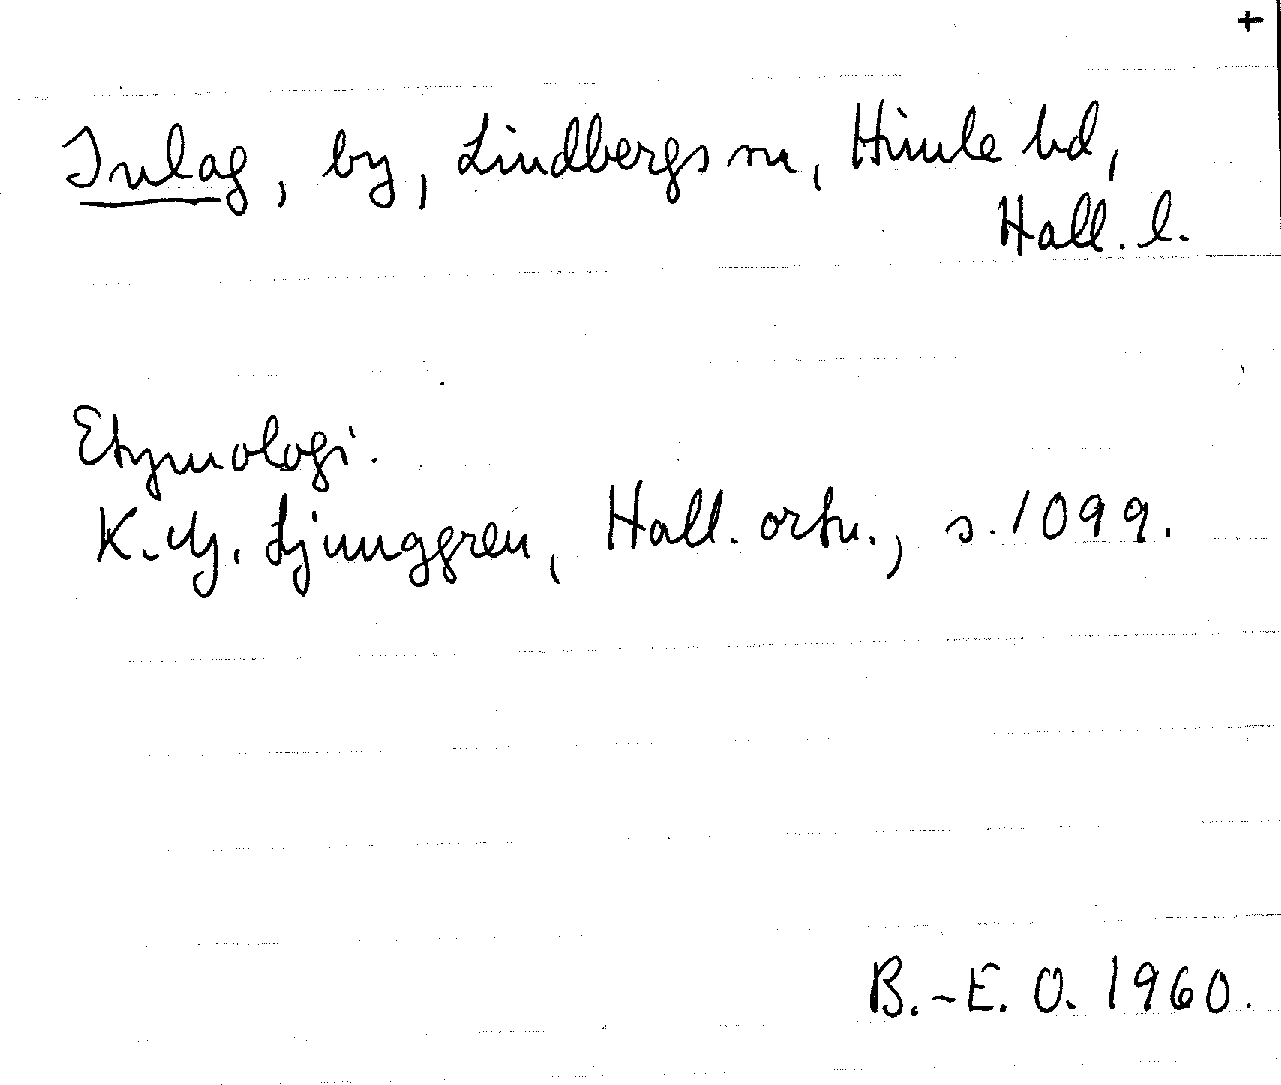 +
Inlag, by, Lindbergs sn, Himle hd,
Hall. l.
Etymologi.
K. G. Ljunggren, Hall. ortn., s. 1099.
B.-E. O. 1960.